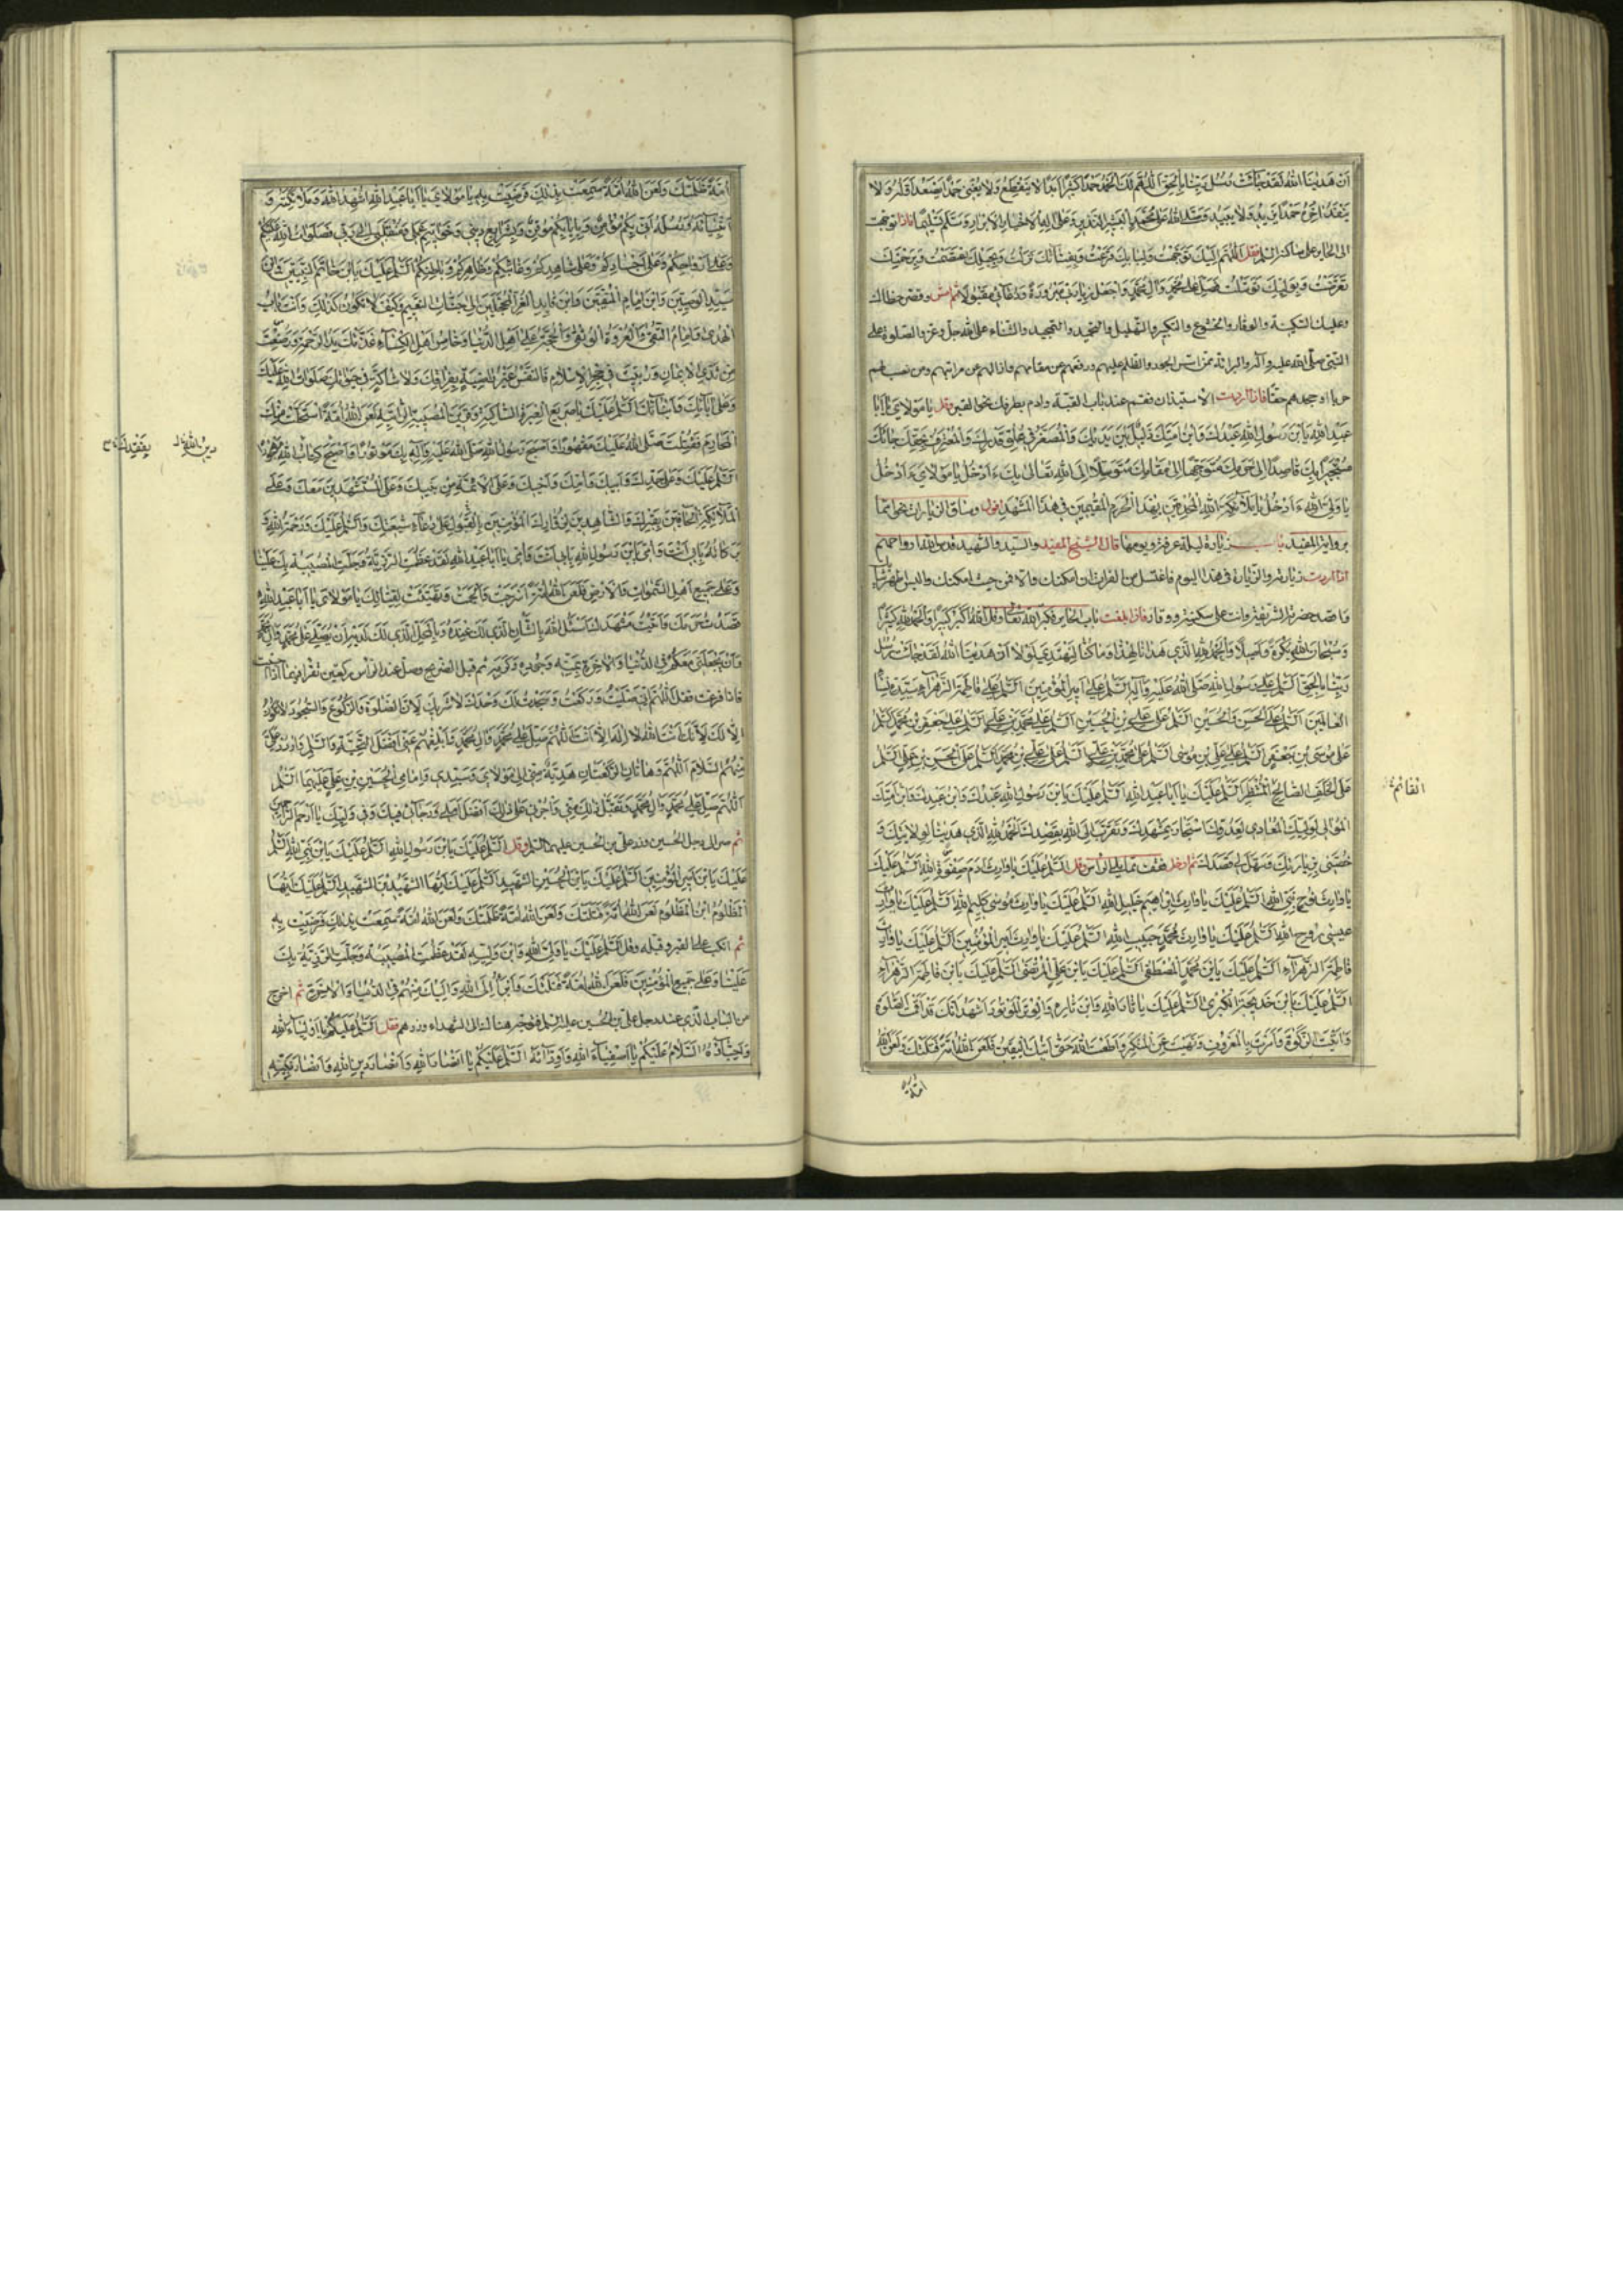 ان هدينا الله لقد جاءت رسل ربنا بالحق اللهم لك الحمد حمدا كثيرا ابدا لا ينقطع ولا يفنى حمدا يصعد اوله ولا
ينفد اخره حمدا يزيد ولا يبيد وصلى الله على محمد البشير النذير وعلى اله الاخيار الابرار وسلم تسليما فاذا توجهت
الى الحاير على ساكنه السلم فقل اللهم اليك توجهت وببابك قرعت وبفنائك نزلت وبحبلك اعتصمت وبرحمتك
تعرضت وبوليك توسلت فصل على محمد وال محمد واجعل زيارتى مبرورة ودعائى مقبولا ثم امش وقصر خطاك
وعليك السكينة والوقار والخشوع والتكبير والتهليل والتحميد والتمجيد والثناء على الله جل وعز والصلوة على
النبى صلى الله عليه واله والبرائة ممن اسس الجور والظلم عليهم ودفعهم عن مقامهم وازالهم عن مراتبهم ومن نصب لهم
حربا او جحدهم حقا فاذا اردت الاستيذان فقم عند باب القبة وارم بطرفك نحو القبر وقل يا مولاى يا ابا
عبد الله يا ابن رسول الله عبدك وابن امتك الذليل بين يديك والمصغر فى علو قدرك والمعترف بحقك جائك
مستجيرا بك قاصدا الى حرمك متوجها الى مقامك متوسلا الى الله تعالى بك ءادخل يا مولاى ءادخل
يا ولى الله ءادخل يا ملائكة الله المحدقين بهذا الحرم المقيمين فى هذا المشهد اقول وساق الزيارات نحوا مما
برواية المفيد باب زيارة ليلة عرفة ويومها قال الشيخ المفيد والسيد والشهيد قدس الله ارواحهم
اذا اردت زيارته والزيارة فى هذا اليوم فاغتسل من الفرات ان امكنك والا فمن حيث امكنك والبس اطهر ثيابك
واقصد حضرته الشريفة وانت على سكينة ووقار فاذا بلغت باب الحاير فكبر الله تعالى وقل الله اكبر كبيرا والحمد لله كثيرا
وسبحان الله بكرة واصيلا والحمد لله الذى هدانا لهذا وما كنا لنهتدى لولا ان هدينا الله لقد جاءت رسل
ربنا بالحق السلم على رسول الله صلى الله عليه واله السلم على امير المؤمنين السلم على فاطمة الزهراء سيدة نساء
العالمين السلم على الحسن والحسين السلم على على بن الحسين السلم على محمد بن على السلم على جعفر بن محمد السلم
على موسى بن جعفر السلم على على بن موسى السلم على محمد بن على السلم على على بن محمد السلم على الحسن بن على السلم
على الخلف الصالح المنتظر السلم عليك يا ابا عبد الله السلم عليك يا ابن رسول الله عبدك وابن عبدك وابن امتك
الموالى لوليك المعادى لعدوك استجار بمشهدك وتقرب الى الله بقصدك الحمد لله الذى هدينا لولايتك و
خصنى بزيارتك وسهل لى قصدك ثم ادخل فقف مما يلى الراس وقل السلم عليك يا وارث ادم صفوة الله السلم عليك
يا وارث نوح نبى الله السلم عليك يا وارث ابراهيم خليل الله السلم عليك يا وارث موسى كليم الله السلم عليك يا وارث
عيسى روح الله السلم عليك يا وارث محمد حبيب الله السلم عليك يا وارث امير المؤمنين السلم عليك يا وارث
فاطمة الزهراء السلم عليك يا ابن محمد المصطفى السلم عليك يا ابن على المرتضى السلم عليك يا ابن فاطمة الزهراء
السلم عليك يا ابن خديجة الكبرى السلم عليك يا ثار الله وابن ثاره والوتر الموتور اشهد انك قد اقمت الصلوة
واتيت الزكوة وامرت بالمعروف ونهيت عن المنكر واطعت الله حتى اتيك اليقين فلعن الله امة قتلتك ولعن الله
امة
القائم
امة ظلمتك ولعن الله امة سمعت بذلك فرضيت به يا مولاى يا ابا عبد الله اشهد الله وملائكته و
انبيائه ورسله انى بكم مؤمن وبايابكم موقن بشرايع دينى وخواتيم عملى ومنقلبى الى ربى فصلوات الله عليكم
وعلى ارواحكم وعلى اجسادكم وعلى شاهدكم وغائبكم وظاهركم وباطنكم السلم عليك يا ابن خاتم النبيين وابن
سيد الوصيين وابن امام المتقين وابن قايد الغر المحجلين الى جنات النعيم وكيف لا تكون كذلك وانت باب
الهدى وامام التقى والعروة الوثقى والحجة على اهل الدنيا وخامس اهل الكساء غذتك يد الرحمة ورضعت
من ثدى الايمان وربيت فى حجر الاسلام فالنفس غير راضية بفراقك ولا شاكة فى حيوتك صلوات الله عليك
وعلى ابائك وابنائك السلم عليك يا صريع العبرة الساكبة وقرين المصيبة الراتبة لعن الله امة استحلت منك
المحارم فقتلت صلى الله عليك مقهورا واصبح رسول الله صلى الله عليه واله بك موتورا واصبح كتاب الله مهجورا
السلم عليك وعلى جدك وابيك وامك واخيك وعلى الائمة من بنيك وعلى المستشهدين معك وعلى
الملائكة الحافين بقبرك والشاهدين لزوارك المؤمنين بالقبول على دعاء شيعتك والسلم عليك ورحمة الله و
بركاته بابى انت وامى يا ابن رسول الله بابى انت وامى يا ابا عبد الله لقد عظمت الرزية وجلت المصيبة بك علينا
وعلى جميع اهل السموات والارض فلعن الله امة اسرجت والجمت وتهيئت لقتالك يا مولاى يا ابا عبد الله
قصدت حرمك واتيت مشهدك اسئل الله بالشان الذى لك عنده وبالمحل الذى لك لديه ان يصلى على محمد وال محمد
وان يجعلنى معكم فى الدنيا والاخرة بمنه وجوده وكرمه ثم قبل الضريح وصل عند الراس ركعتين تقرا فيهما ما احببت
فاذا فرغت فقل اللهم انى صليت وركعت وسجدت لك وحدك لا شريك لك لان الصلوة والركوع والسجود لا تكون
الا لك لانك انت الله لا اله الا انت اللهم صل على محمد وال محمد وابلغهم عنى افضل التحية والسلم واردد على
منهم السلام اللهم وهاتان الركعتان هدية منى الى مولاى وسيدى وامامى الحسين بن على عليهما السلم
اللهم صل على محمد وال محمد وتقبل ذلك منى واجزنى على ذلك افضل املى ورجائى فيك وفى وليك يا ارحم الراحمين
ثم صر الى رجل الحسين وزر على بن الحسين عليهما السلم وقل السلم عليك يا ابن رسول الله السلم عليك يا ابن نبى الله السلم
عليك يا ابن امير المؤمنين السلم عليك يا ابن الحسين الشهيد السلم عليك ايها الشهيد بن الشهيد السلم عليك ايها
المظلوم ابن المظلوم لعن الله امة قتلتك ولعن الله امة ظلمتك ولعن الله امة سمعت بذلك فرضيت به
ثم انكب على القبر وقبله وقل السلم عليك يا ولى الله وابن وليه لقد عظمت المصيبة وجلت الرزية بك
علينا وعلى جميع المؤمنين فلعن الله امة قتلتك وابرأ الى الله واليك منهم فى الدنيا والاخرة ثم اخرج
من الباب الذى عند رجل على بن الحسين عليه السلم فتوجه هناك الى الشهداء وزرهم فقل السلم عليكم يا اولياء الله
واحباؤه السلام عليكم يا اصفياء الله واودائه السلم عليكم يا انصار الله وانصار دين الله وانصار نبيه
دين الله
بفقدك